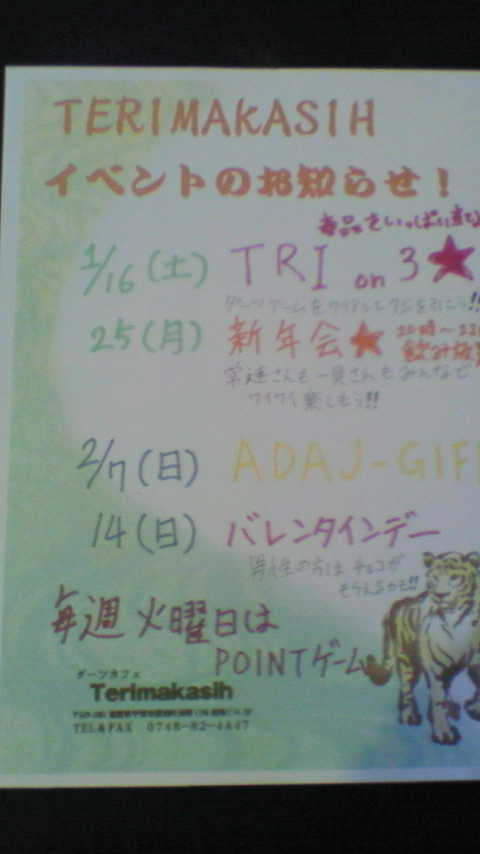 TERIMAKASIH
イベントのお知らせ!
景品をいっぱい
1/16(土) TRI on 3★
ダーツゲームをクリアしてクジを引こう!!
25(月) 新年会★ 20時~
飲み放題
常連さんも一見さんもみんなで
ワイワイ楽しもう!!
2/7(日) ADAJ-GIF
14(日) バレンタインデー
男性の方は チョコが
もらえるかも!!
毎週 火曜日は
POINTゲーム
ダーツカフェ
Terimakasih
TEL&FAX 0748-82-4447